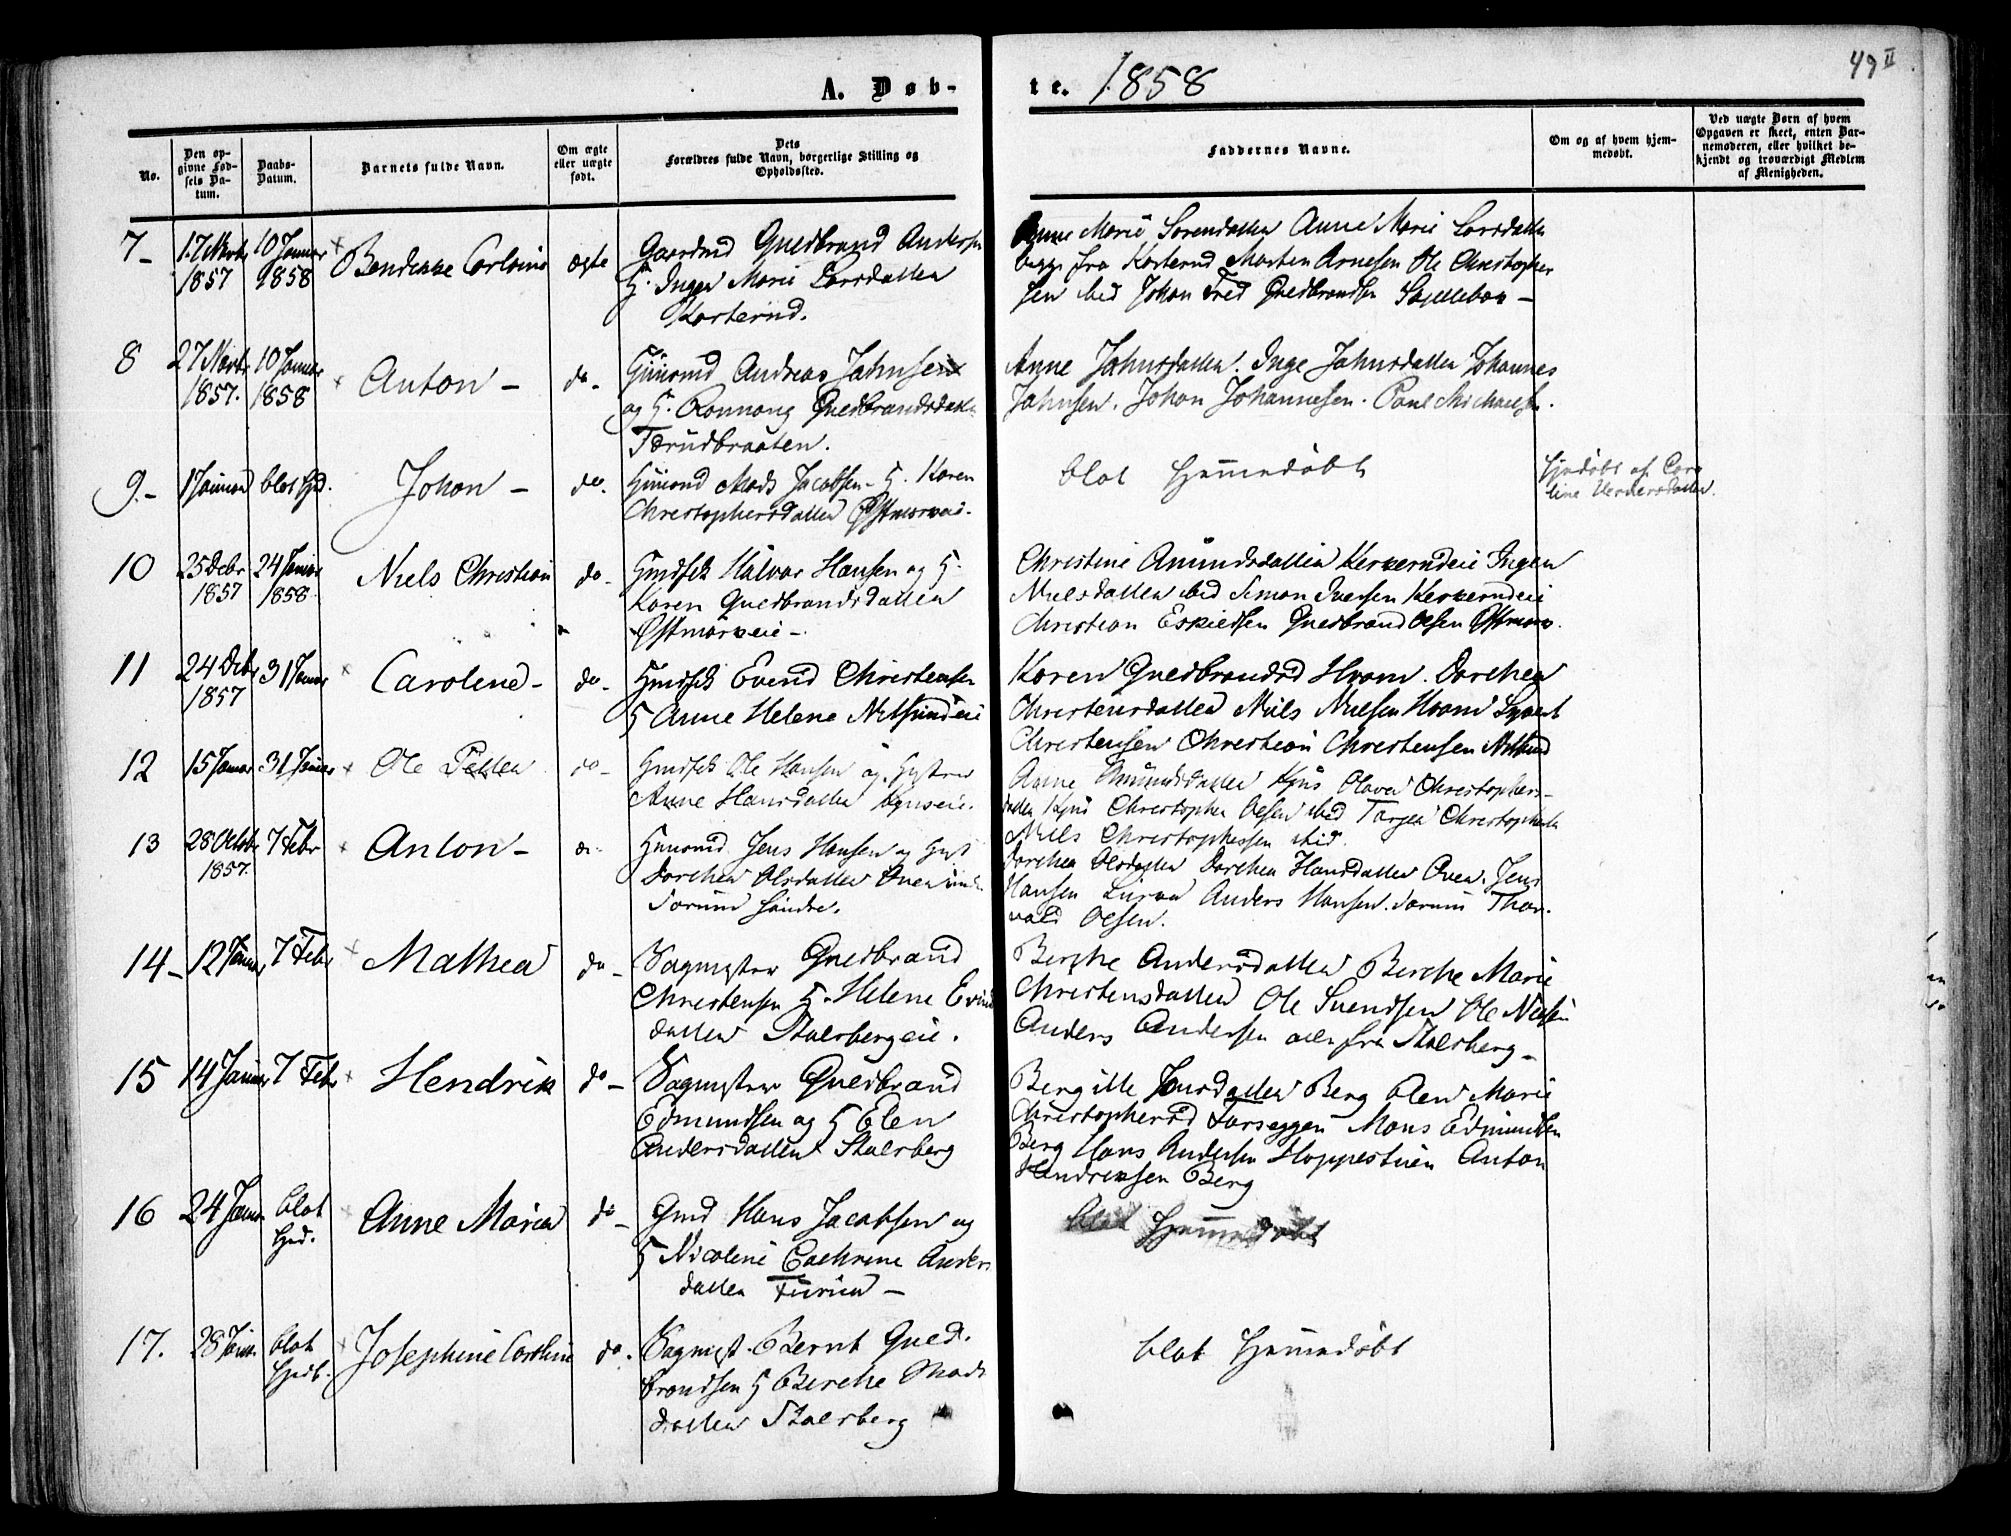 49 II
A. Døb-
te. 1858
No.
Den op-
givne Fød-
sels Da-
tum.
Daabs-
Datum.
Barnets fulde Navn.
Om ægte
eller uægte
født.
Dets
Forældres fulde Navn, borgerlige Stilling og
Opholdssted.
Faddernes Navne.
Om og af hvem hjem-
medøbt.
Ved uægte Børn af hvem
Opgaven er skeet, enten Bar-
nemoderen, eller hvilket be-
kjendt og troværdigt Medlem
af Menigheden.
7 -
17 Novbr
1857
10 Januar
1858
ægte
Gaardmd Guldbrand Andersen
H. Inger Marie Larsdatter
Korterud.
Anne Marie Sørensdatter Anne Marie Larsdatter
begge fra Korterud Morten Arnesen Ole Christopher
sen ibid Johan Fred Guldbrandsen
8
27 Novbr
1857.
10 Januar
1858
Anton -
do -
Huusmd Andreas Jahnsen
og H. Rønnaug Guldbrandsdatter
Tærudbraaten.
Anne Jahnsdatter. Inge Jahnsdatter Johannes
Jahnsen. Johan Johannesen. Paul Michaelsen.
9. -
1 Januar
blot Hjd.
Johan -
do.
Huusmd Mads Jacobsen - H. Karen
Christophersdatter Østmorkeie.
blot Hjemmedøbt
Hjdøbt af Caro
line
10
25 Debr
1857
24 Januar
1858
Niels Christian
do -
Huusfolk Halvor Hansen og H.
Karen Guldbrandsdatter
Østmorkeie -
Christine Amundsdatter Kerkerudeie Inger
Nielsdatter ibid Simon Iversen Kerkerudeie
Christian Eskildsen Guldbrand Olsen Østmork.
11
24 Debr
1857
31 Januar
Caroline -
do -
Huusfolk Evend Christensen
H Anne Helene Nitsundeie
Karen Guldbrandsd Hvam. Dorthea
Christensdatter Niels Nielsen Hvam Syvert
Christensen Christian Christensen Nitsund
12
15 Januar
31 Januar
Ole Petter
do -
Huusfolk Ole Hansen og Hustru
Anne Hansdatter Kjuseie.
Anne Amundsdatter Kjus Olava Christophers-
datter Kjus Christopher Olsen ibid Torger Christophersen
Niels Christophersen ibid.
13
28 Octobr
1857.
7 Febr
Anton -
Huusmd Jens Hansen og Hust
Dorthea Olsdatter
Dorthea Olsdatter Dorthea Hansdatter Jens
Hansen Anders Hansen. Thor-
vald Olsen.
14 -
12 Januar
7 Febr
Mathea
do -
Sagmester Guldbrand
Christensen H. Helene Evind
datter Stalsbergeie.
Berthe Andersdatter Berthe Marie
Christensdatter Ole Svendsen Ole Nielsen
Anders Andersen alle fra Stalsberg -
15
14 Januar
7 Febr
Hendrik
do -
Sagmester Guldbrand
Edmundsen og H Elen
Andersdatter Stalsberg
Bergitte Jensdatter Berg Olen Marie
Christophersd Torseggen Mons Edmundsen
Berg Hans Andersen Hoppestuen Anton
Hendriksen Berg
16
24 Janur
blot
Hjd.
Anne Maria
do -
Gmd Hans Jacobsen og
H Nicoline Cathrine Anders
datter Furua -
blot Hjemmedøbt
17.
28 Janr.
blot
Hjdb.
Josephine Caroline
do.
Sagmst. Bernt Guld-
brandsen H Berthe Mads
datter Stalsberg
blot Hjemmedøbt